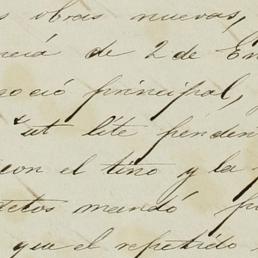 s obras nuevas,
ncia de 2 de En
goció principal,
ut lite penden
con el tino y la
detos mandó
que el repetido